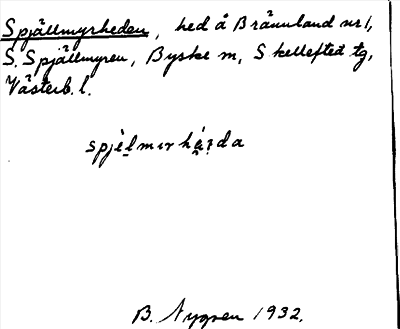 Spjällmyrheden, hed å Brännland nr 1,
S. Spjällmyren, Byske sn, Skellefteå tg,
Västerb. l.
B. Nygren 1932.